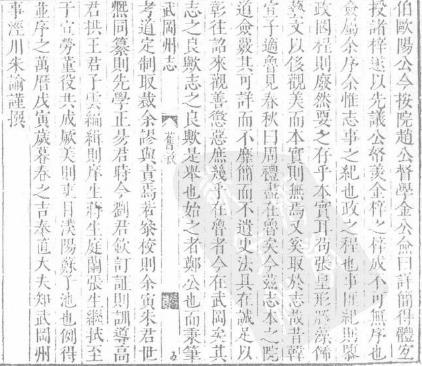 伯歐陽公今按院趙公督學金公僉曰計簡得體爰
授諸梓遂以先議公帑羡金梓之梓成不可無序也
僉屬余序余惟志事之紀也政之程也事匪紀則慕
政罔程則廢然要之存乎本實耳苟張皇形勝藻飾
藝文以侈觀美而本實則無焉又奚取於志哉昔韓
宣子適魯見春秋曰周禮盡在魯矣今茲志本之院
道僉裁其可詳而不靡簡而不遺史法具在誠足以
彰往詔來觀善懲惡庶幾乎在魯者今在武岡矣其
志之良歟志之良歟是舉也始之者鄭公也而秉筆
武岡州志 舊敘
考道定制取裁余謬與責焉若叅校則余寅朱君世
懋同纂則先學正易君時今劉君欽訂証則訓導高
君拱王君予雲編緝則庠生蔣生庭蘭張生繼拭至
于宣勞董役共成厥美則吏目漢陽蘇子池也例得
並序之萬曆戊寅歲暮春之吉奉直大夫知武岡州
事涇川朱諭謹撰